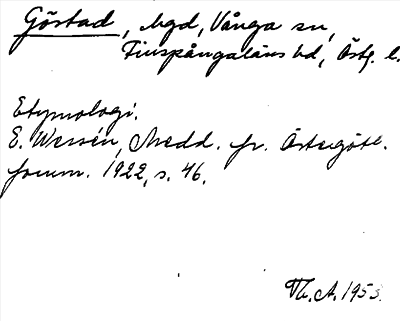 Göstad, bgd, Vånga sn,
Finspångaläns hd, Östg. l.
Etymologi.
E. Wessén, Medd. fr. Östergötl.
fornm. 1922, s. 46.
Th. A. 1953.